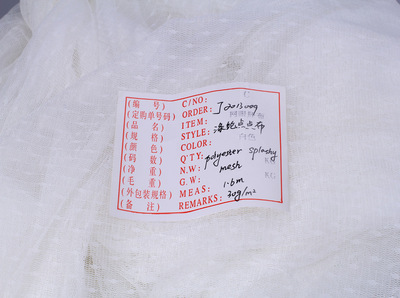 (编 号) C/NO:
(定购单号码) ORDER: J2013009
(品 名) ITEM:
(规 格) STYLE: 海鲍点点布
(颜 色) COLOR: 白色
(码 数) Q'TY: polyester splashy
(净 重) N.W: mesh
(毛 重) G.W: KG
(外包装规格) MEAS: 1.6m
(备 注) REMARKS: 30g/m²